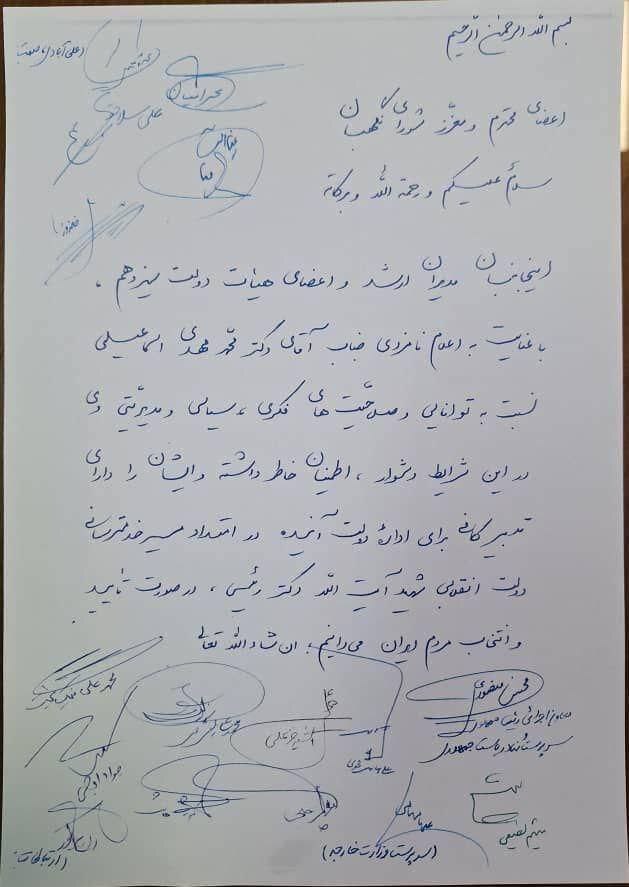 بسم الله الرحمن الرحیم
اعضای محترم و معزّز شورای نگهبان
سلامٌ علیکم و رحمة الله و برکاته
اینجانبان مدیران ارشد و اعضای هیأت دولت سیزدهم،
با عنایت به اعلام نامزدی جناب آقای دکتر محمّد مهدی اسماعیلی
نسبت به توانایی و صلاحیّت‌های فکری، سیاسی و مدیریّتی وی
در این شرایط دشوار، اطمینان خاطر داشته و ایشان را دارای
تدبیر کافی برای ادارهٔ دولت آینده در امتداد مسیر خدمترسانی
دولت انقلابی شهید آیت الله دکتر رئیسی، در صورت تأیید
و انتخاب مردم ایران می‌دانیم؛ ان شاءالله تعالی
علی‌آبادی صمت
بحرانیان
محسن منصوری
معاون اجرائی رئیس جمهور
سرپرست نهاد ریاست جمهوری
میثم لطیفی
(سرپرست وزارت خارجه)
(ارتباطات)